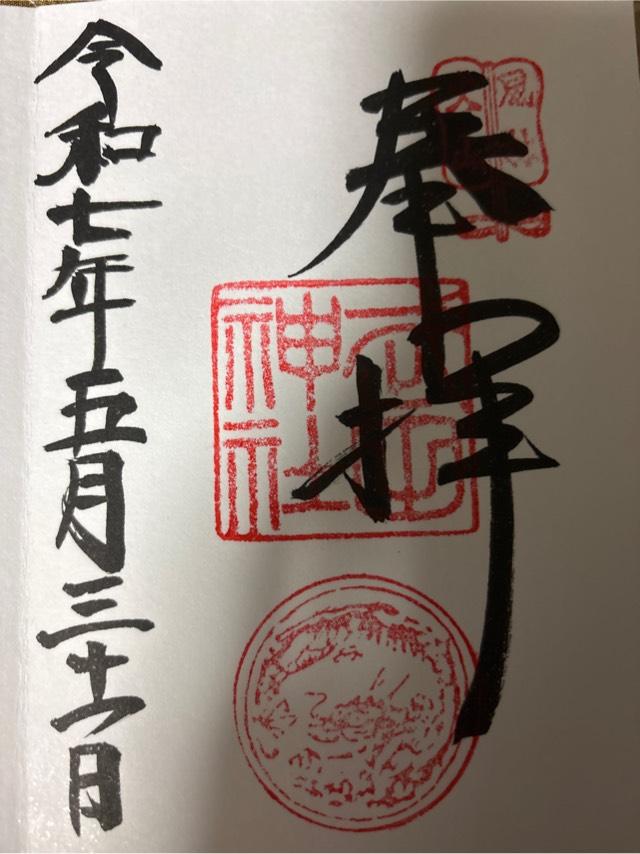 奉拝
神社
令和七年五月三十一日